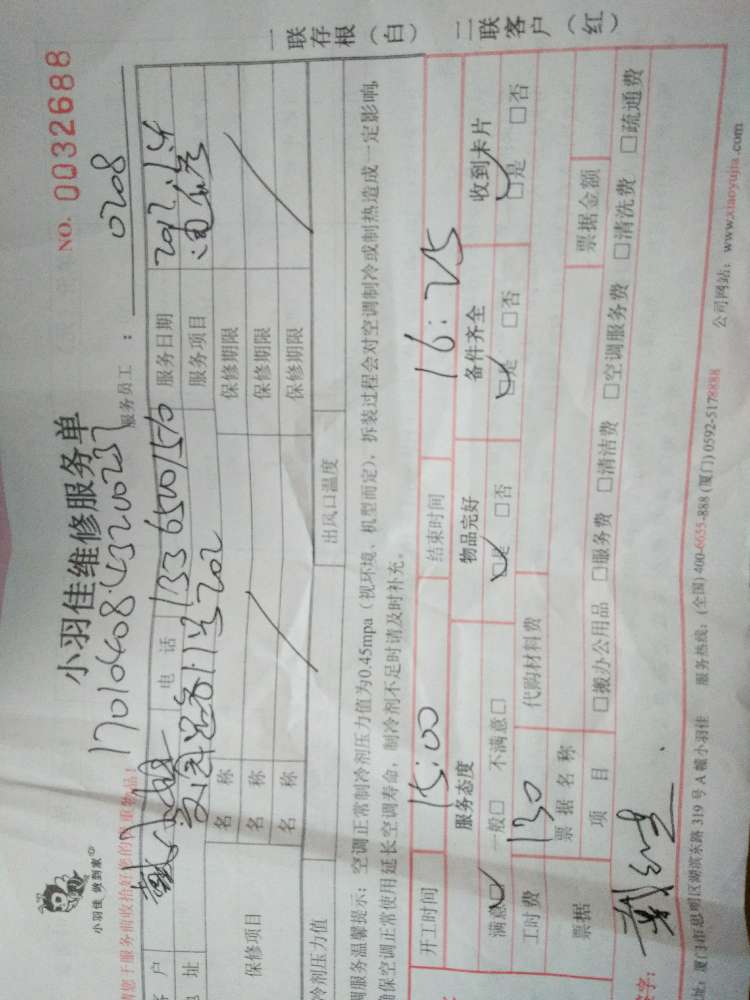 小羽佳 做到家
小羽佳维修服务单
NO. 0032688
17010408
服务员工： 0208
户
电 话 13365001570
服务日期
址
202
服务项目
保修项目
名 称
保修期限
名 称
保修期限
名 称
保修期限
冷剂压力值
出风口温度
调服务温馨提示：空调正常制冷剂压力值为0.45mpa（视环境、机型而定），拆装过程会对空调制冷或制热造成一定影响，
确保空调正常使用延长空调寿命，制冷剂不足时请及时补充。
一联存根（白） 二联客户（红）
开工时间 15:00 结束时间 16:25
服务态度 物品完好 备件齐全 收到卡片
满意☑ 一般□ 不满意□ ☑是 □否 ☑是 □否 ☑是 □否
工时费 130 代购材料费
票据 票据名称 票据金额
项 目 □搬办公用品 □服务费 □清洁费 □空调服务费 □清洗费 □疏通费
字：
地址：厦门市思明区湖滨东路 319 号 A 幢小羽佳 服务热线：(全国) 400-6655-888 (厦门) 0592-5178888 公司网站：www.xiaoyujia.com